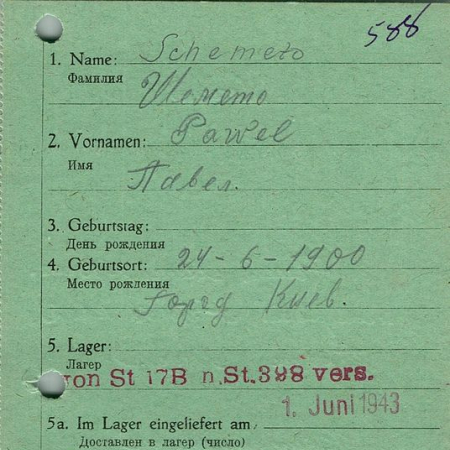 588
1. Name: Schemeto
Фамилия
Шемето
2. Vornamen: Pawel
Имя
Павел.
3. Geburtstag:
День рождения
4. Geburtsort: 24-6-1900
Место рождения
Город Киев.
5. Lager:
Лагер
von St 17B n. St. 398 vers.
1. Juni 1943
5a. Im Lager eingeliefert am
Доставлен в лагер (число)